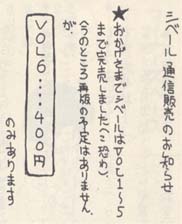 シベール通信販売のお知らせ
★おかげさまでシベールはVOL1～5
まで完売しました(へへ恐わ)
今のところ再版の予定はありません
が、
VOL6‥‥400円
のみあります